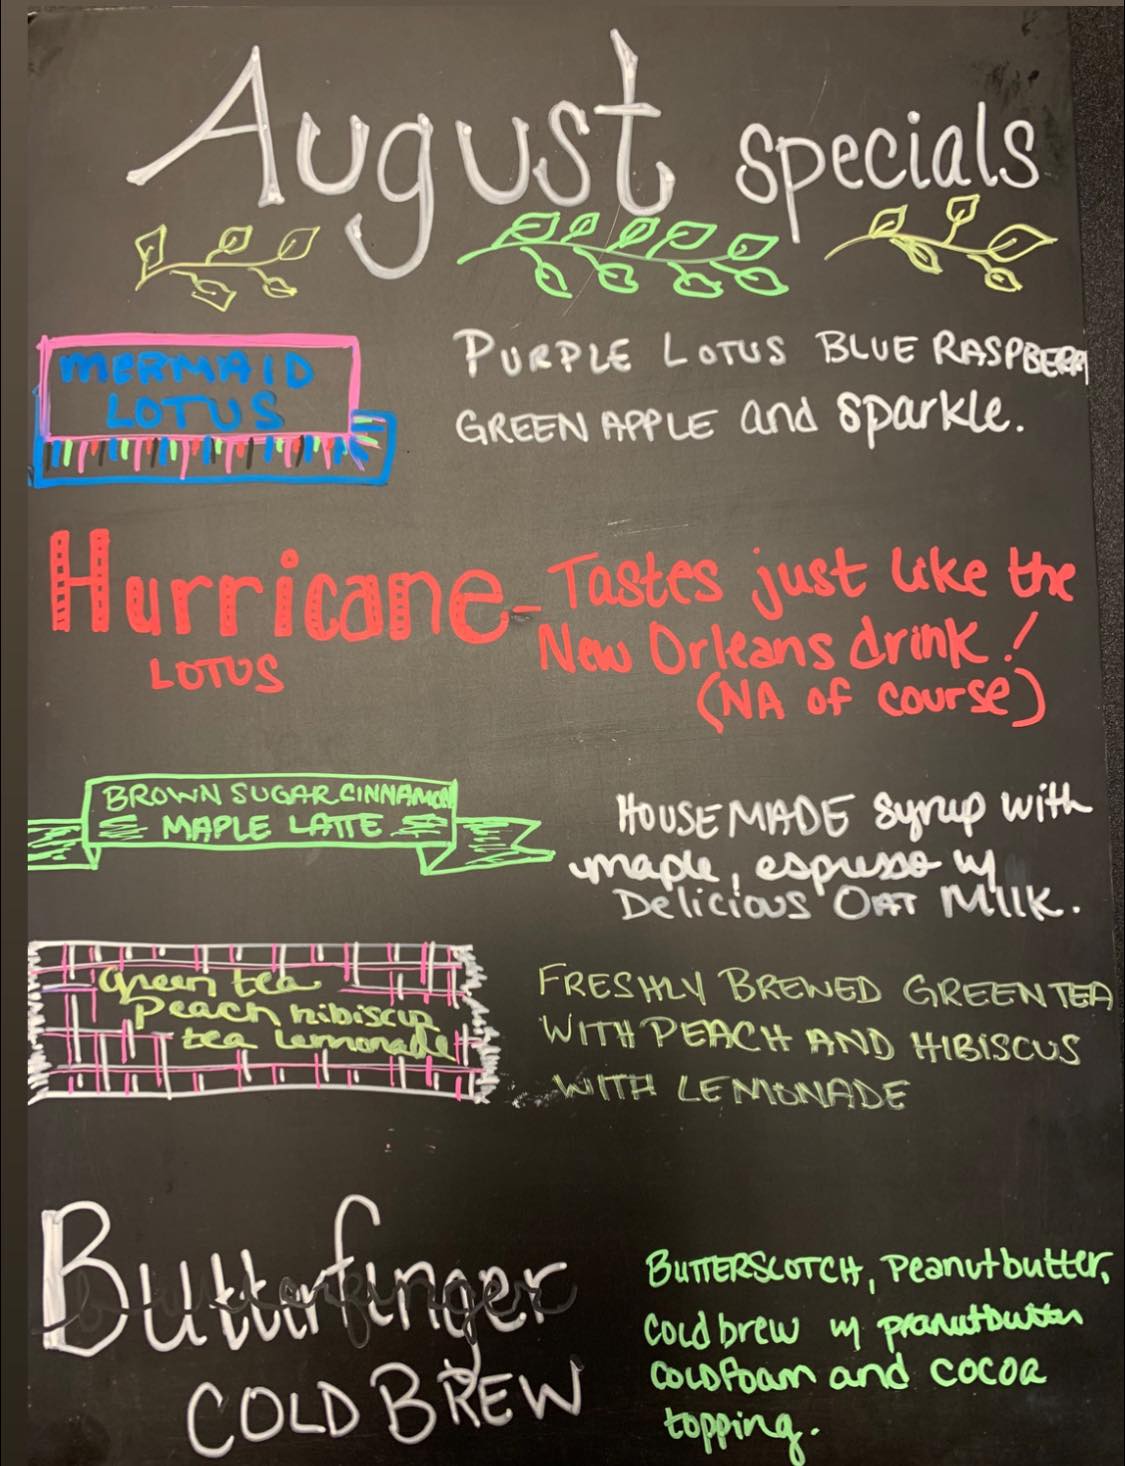 August specials
MERMAID
LOTUS
PURPLE LOTUS BLUE RASPBERRY
GREEN APPLE and sparkle.
Hurricane - Tastes just like the
LOTUS
New Orleans drink!
(NA of course)
BROWN SUGAR CINNAMON
MAPLE LATTE
HOUSEMADE syrup with
maple, espresso w/
Delicious OAT Milk.
Green tea
Peach hibiscus
tea Lemonade
FRESHLY BREWED GREEN TEA
WITH PEACH AND HIBISCUS
WITH LEMONADE
Butterfinger
COLD BREW
BUTTERSCOTCH, Peanutbutter,
Cold brew w/ peanutbutter
COLDfoam and COCOA
topping.